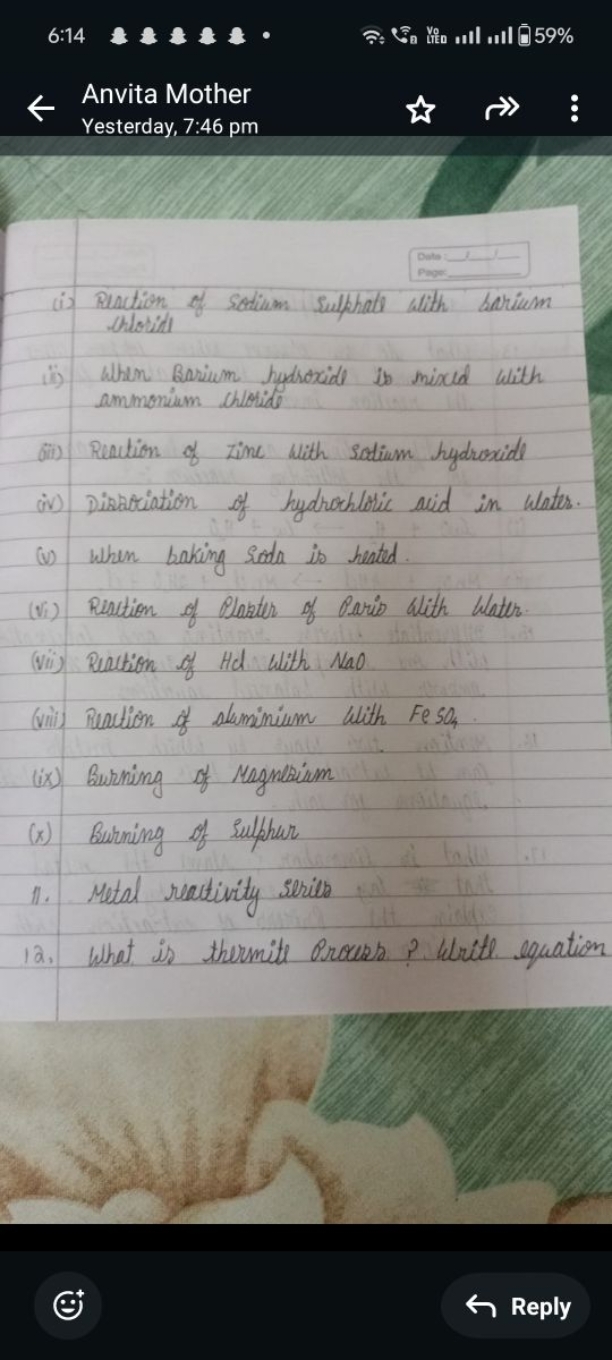 6:14
Vo LTED
59%
Anvita Mother
Yesterday, 7:46 pm
Date :
Page:
(i) Reaction of Sodium Sulphate with barium
chloride
ii) When Barium hydroxide is mixed with
ammonium chloride
(iii) Reaction of zinc with sodium hydroxide
(iv) Dissociation of hydrochloric acid in water.
(v) When baking soda is heated.
(vi) Reaction of Plaster of Paris with Water.
(vii) Reaction of Hcl with NaO
(viii) Reaction of aluminium with FeSO4.
(ix) Burning of Magnesium
(x) Burning of Sulphur
11. Metal reactivity series
12. What is thermite Process ? Write equation
Reply